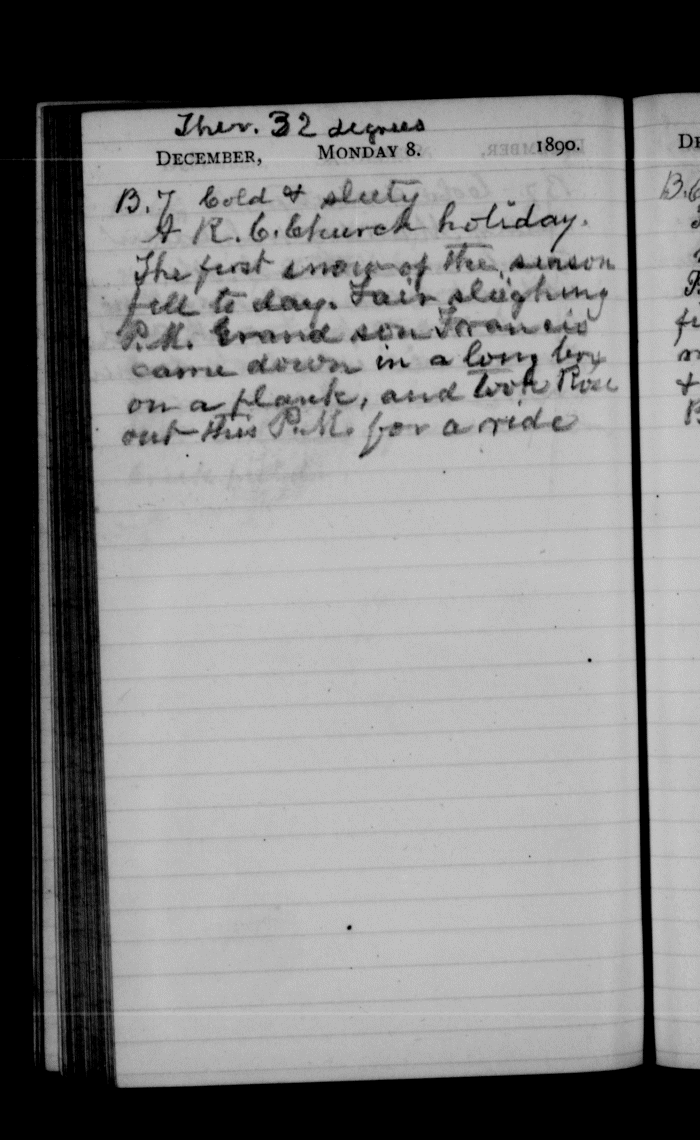 Ther. 32 degrees
DECEMBER, MONDAY 8. 1890.
B. 7 Cold & sleety
A R. C. Church holiday.
The first snow of the season
fell to day. Fair sleighing
P.M. Grand son Francis
came down in a long box
on a plank, and took Rose
out this P.M. for a ride